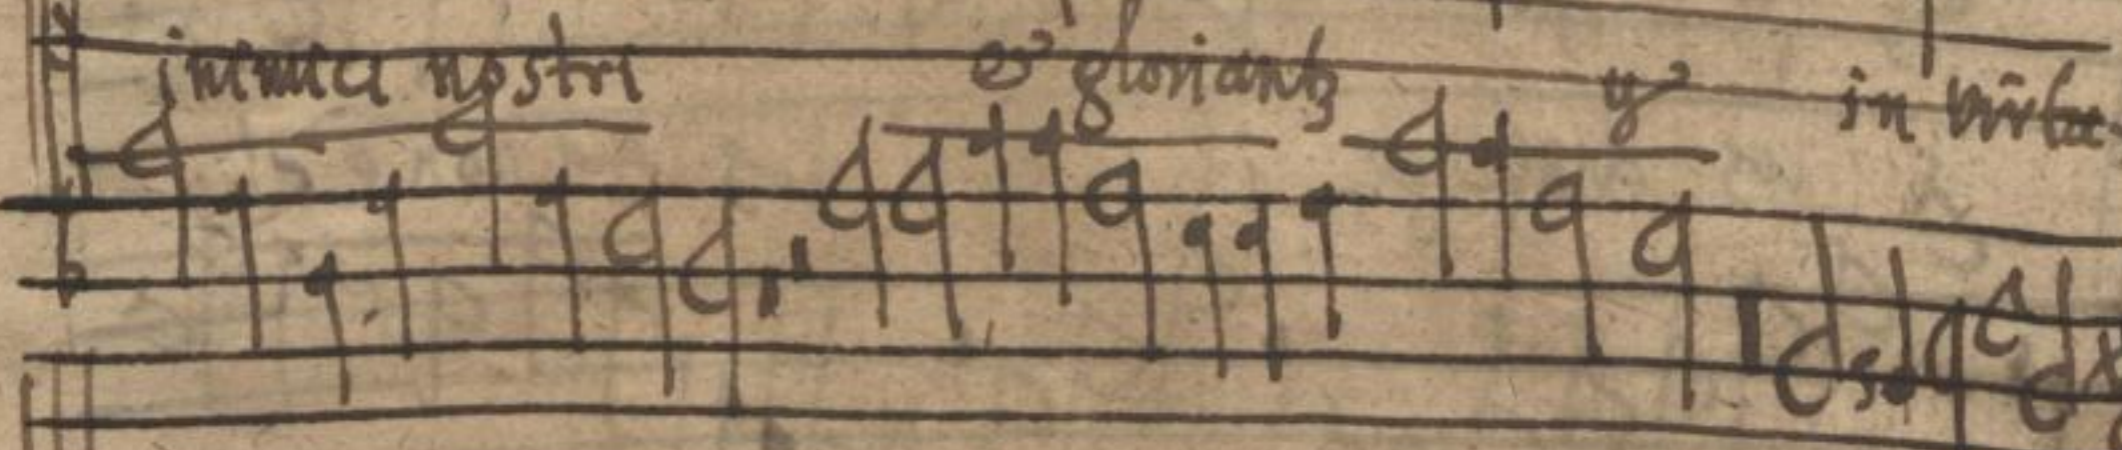 inimici nostri & gloriantꝫ ij in virtu-